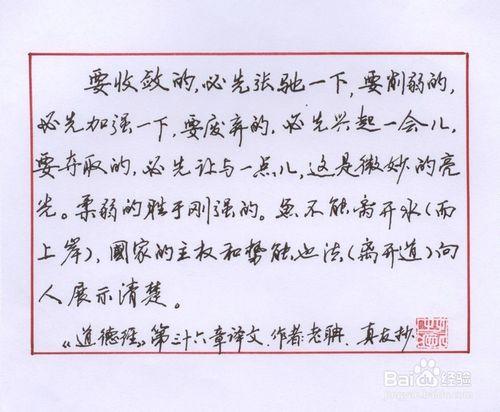 要收敛的,必先张驰一下,要削弱的,
必先加强一下,要废弃的,必先兴起一会儿,
要夺取的,必先让与一点儿,这是微妙的亮
光。柔弱的胜于刚强的。鱼不能离开水(而
上岸),國家的主权和势能也法(离开道)向
人展示清楚。
《道德经》第三十六章译文.作者:老聃.真友抄
Baidu百科经验
jingyan.baidu.com